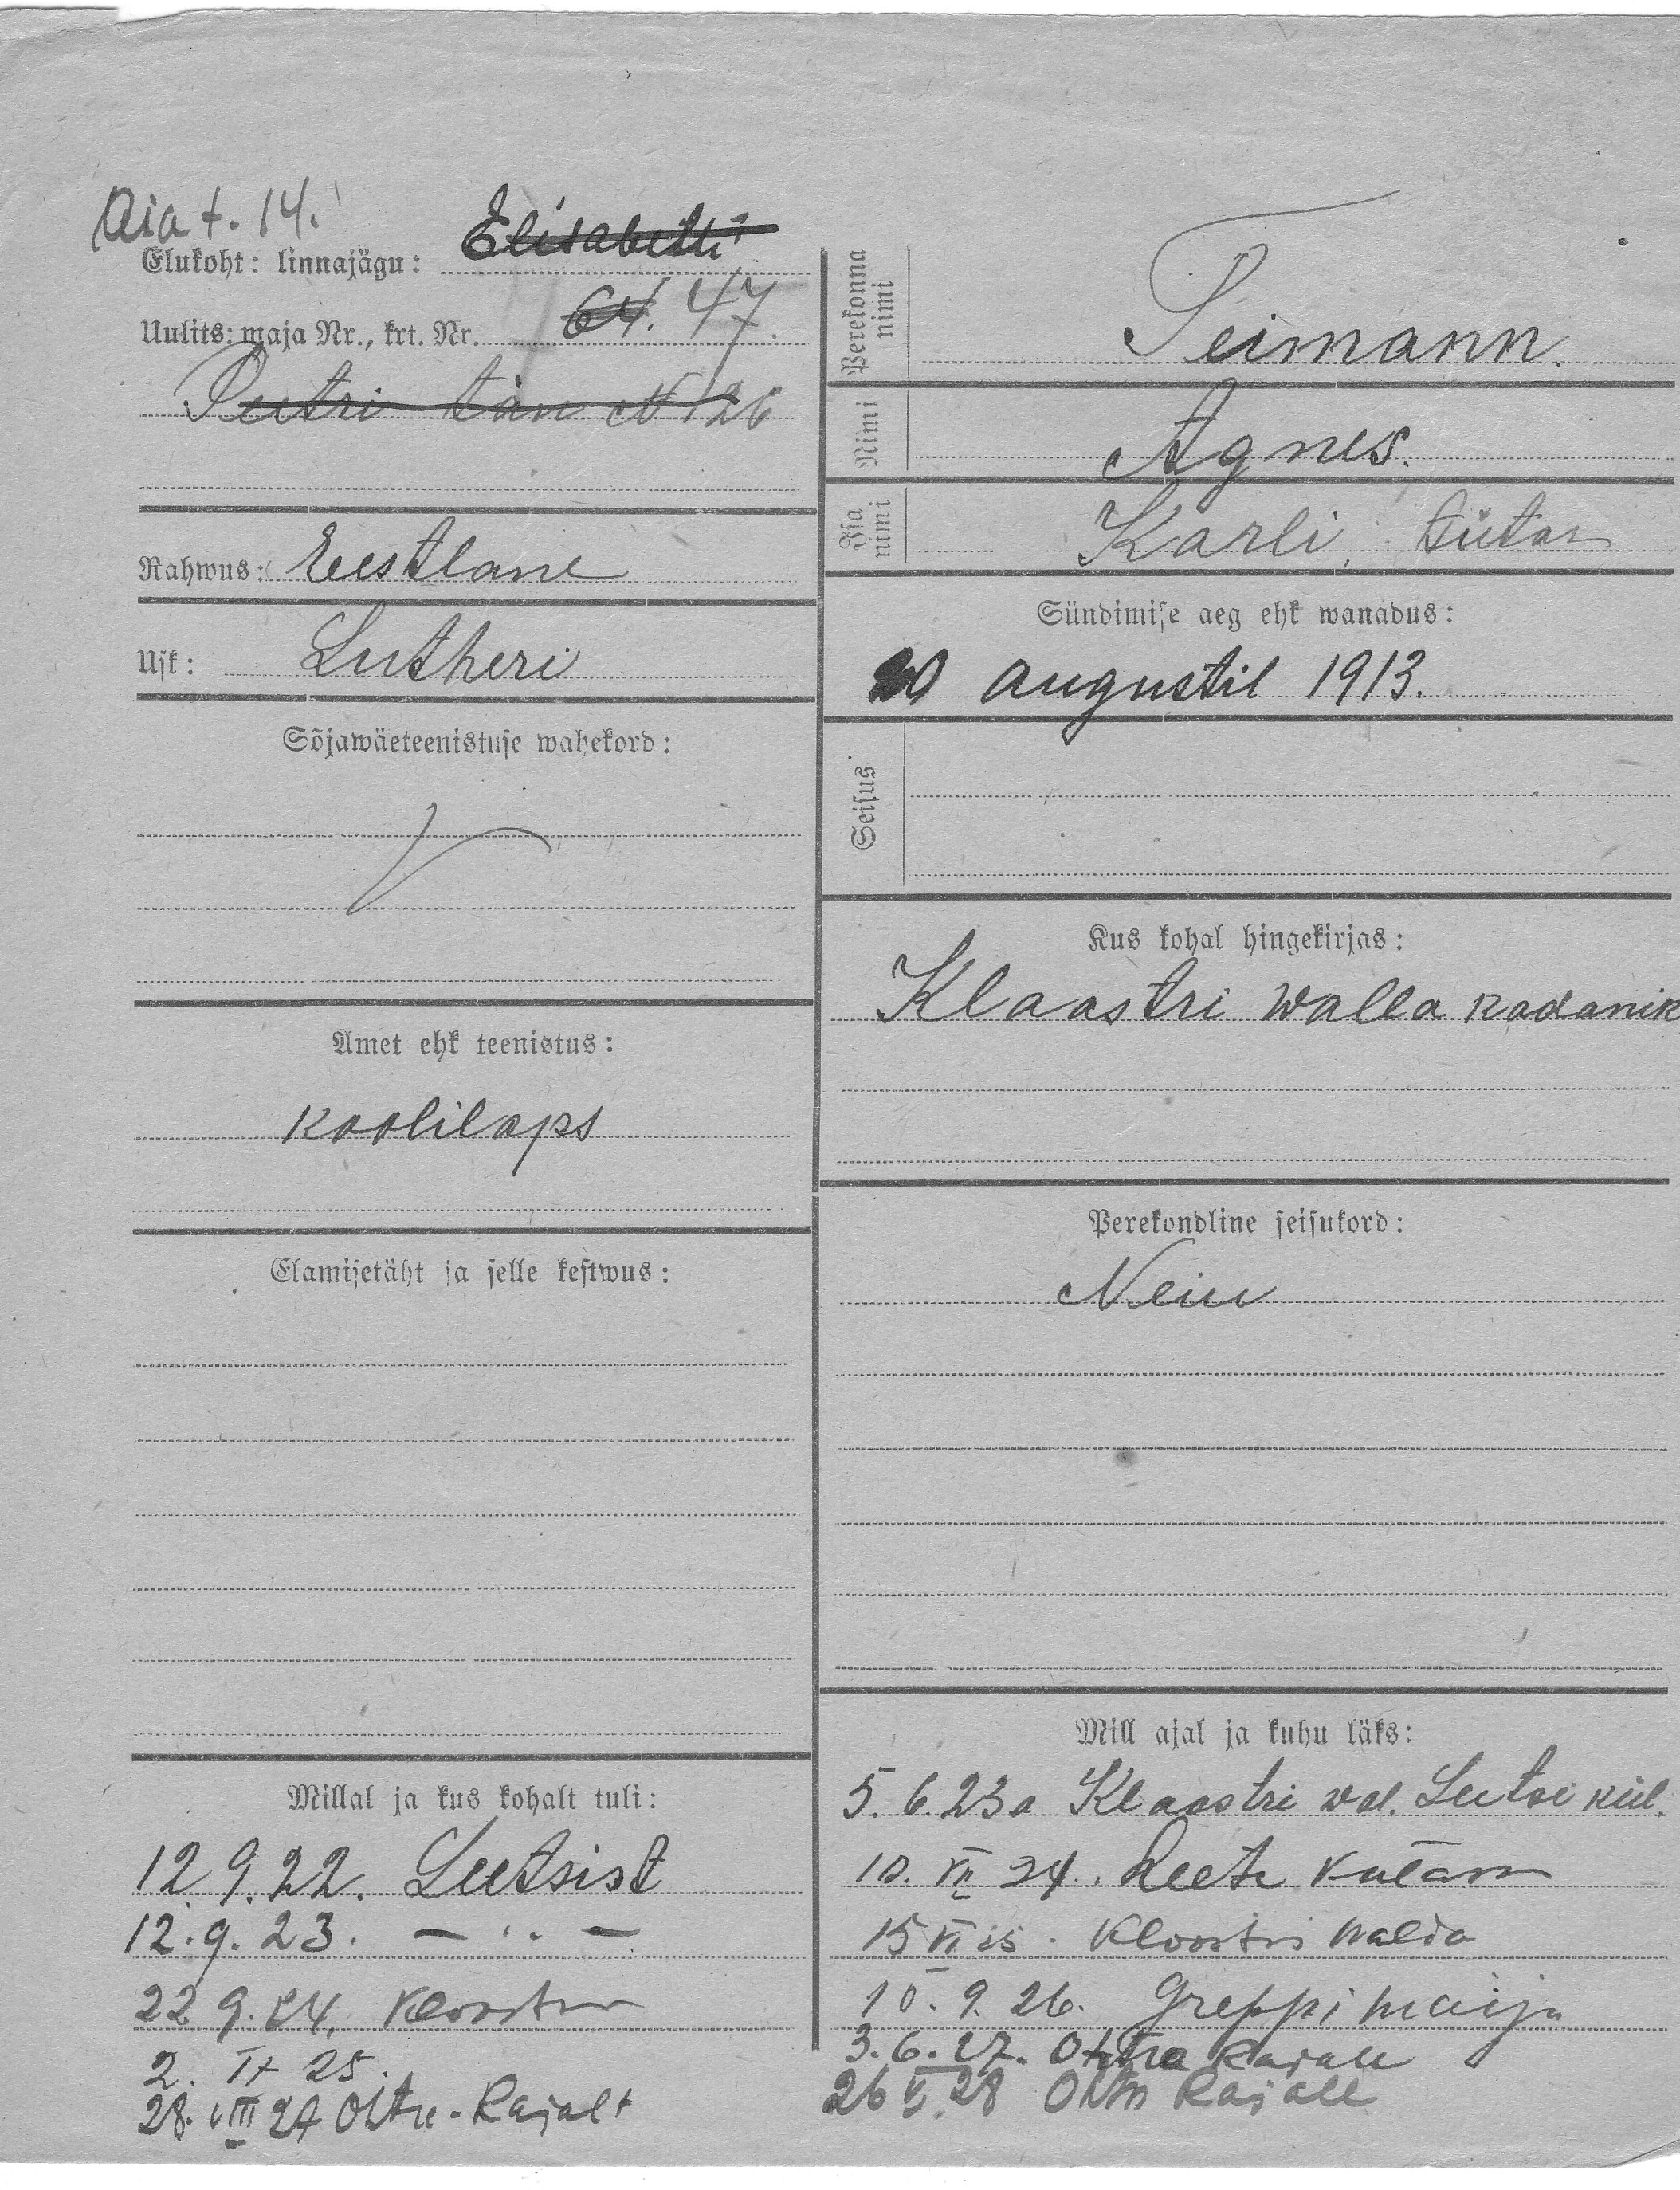 Aia t. 14.
Elukoht: linnajägu: Elisabetti
Uulits: maja Nr., krt. Nr. 64. 47
Peetri tän N 26
Rahwus: Eestlane
Usk: Lutheri
Sõjawäeteenistuse wahekord:
Amet ehk teenistus:
Koolilaps
Elamisetäht ja selle kestwus:
Millal ja kus kohalt tuli:
12.9.22. Leetsist
12.9.23. — ‥ —
22 9.24.
2. IX 25.
28. VIII 27 Ohtre-Rajalt
Perekonna nimi
Seimann.
Nimi Agnes.
Isa nimi Karli, tütar
Sündimise aeg ehk wanadus:
20 augustil 1913.
Seisus
Kus kohal hingekirjas:
Klaastri walla kodanik
Perekondline seisukord:
Neiu
Mill ajal ja kuhu läks:
5.6.23 a Klaastri wal. Leetse kül.
10. VI 24.
15 VI 25. Kloostri walda
10.9.26.
3.6.27. Ohtra Rajale
26 V 28 Rajale